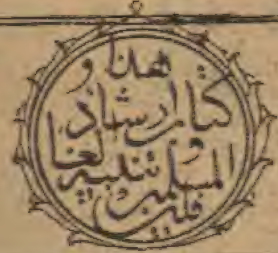 هذا
كتاب ارشاد
المسلمين و تنبيه الغا
فلين